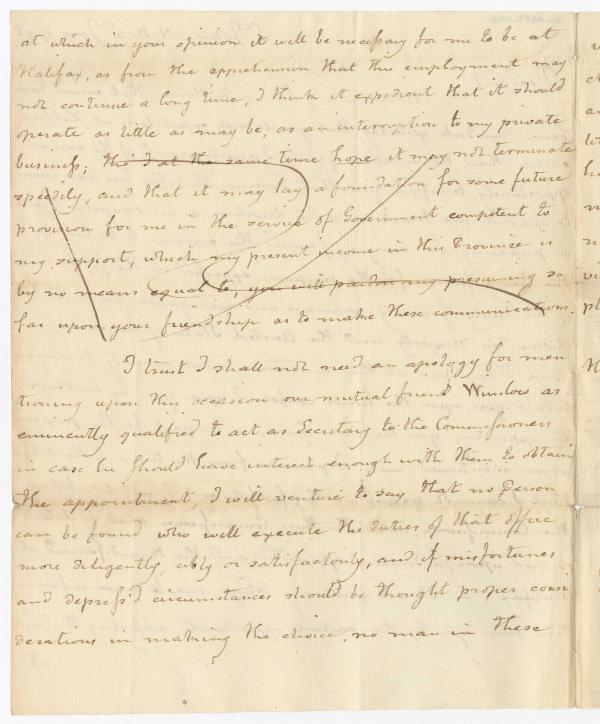 at which in your opinion it will be necessary for me to be at
Halifax, as from the apprehension that this employment may
not continue a long time, I think it expedient that it should
operate as little as may be, as an interruption to my private
business; tho' I at the same time hope it may not terminate
speedily, and that it may lay a foundation for some future
provision for me in the service of Government competent to
my support, which my present income in this Province is
by no means equal to, you will pardon my presuming so
far upon your friendship as to make these communications.
I trust I shall not need an apology for men
tioning upon this occasion our mutual friend Winslow as
eminently qualified to act as Secretary to the Commissioners
in case he should have interest enough with them to obtain
the appointment, I will venture to say that no Person
can be found who will execute the duties of that office
more diligently ably or satisfactorily, and if misfortunes
and depress'd circumstances should be thought proper consi
derations in making the choice, no man in these